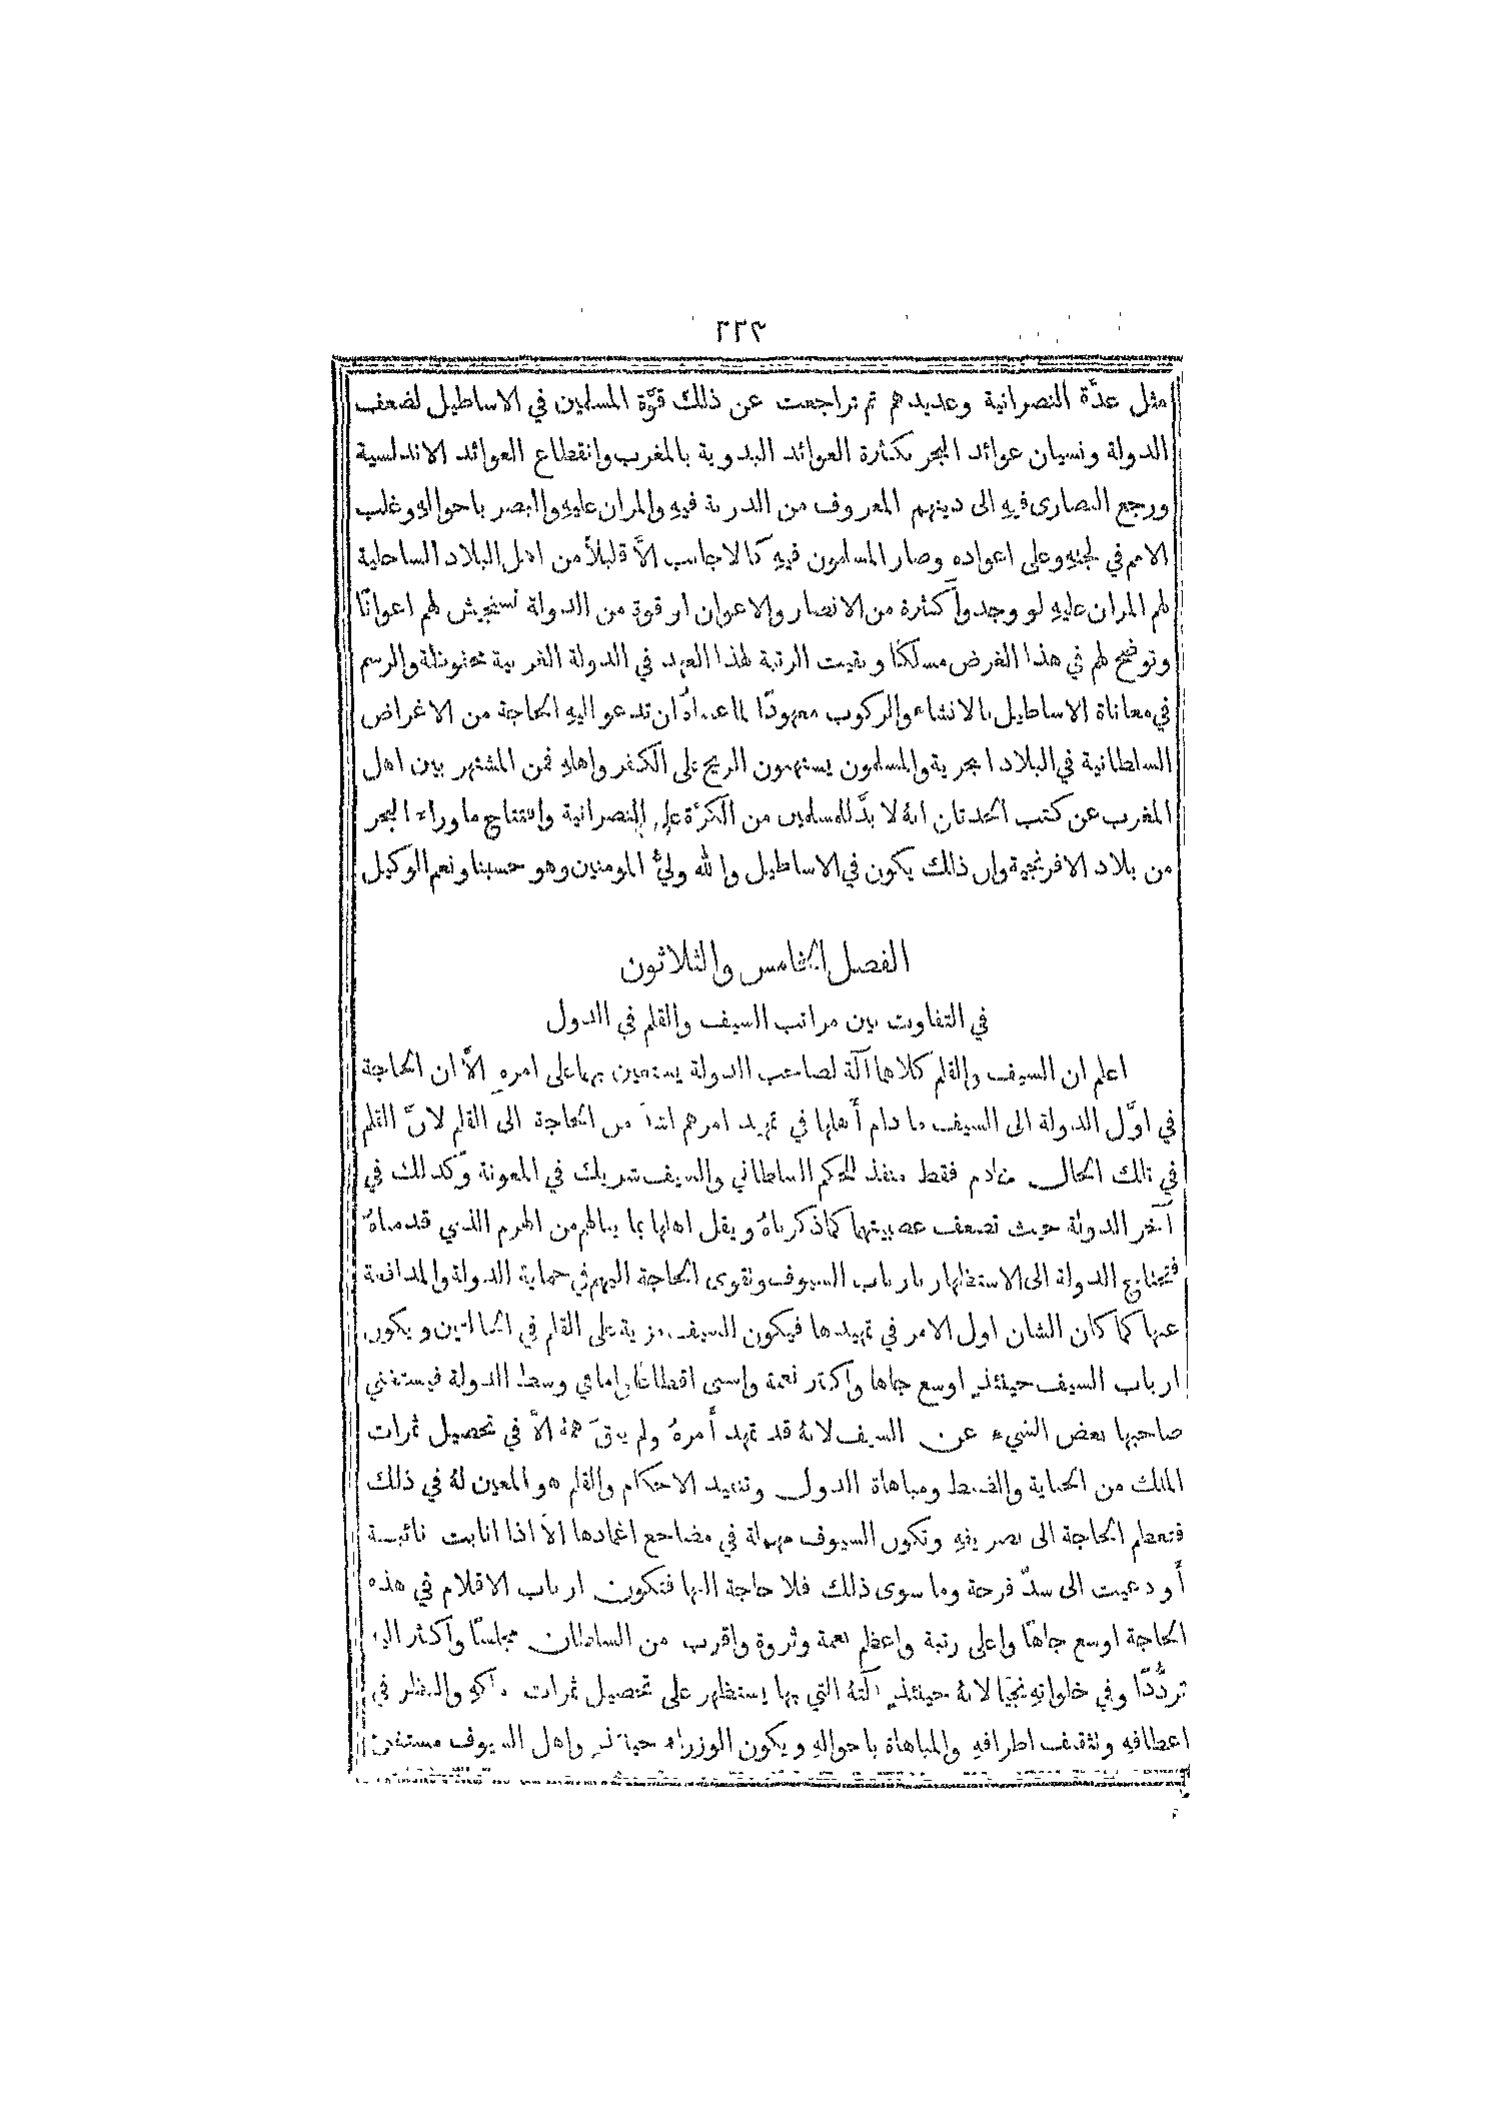 ٢٢٤
مثل عدَّة النصرانية وعديدهم ثم تراجعت عن ذلك قوَّة المسلمين في الاساطيل لضعف
الدولة ونسيان عوائد البحر بكثرة العوائد البدوية بالمغرب وانقطاع العوائد الاندلسية
ورجع النصارى فيهِ الى دينهم المعروف من الدربة فيهِ والمران عليهِ والبصر باحوالهِ وغلب
الامم في لجتهِ وعلى اعواده وصار المسلمون فيهِ كالاجانب الاَّ قليلاً من اهل البلاد الساحلية
لهم المران عليهِ لو وجدوا كثرة من الانصار والاعوان او قوة من الدولة تستجيش لهم اعوانًا
وتوضح لهم في هذا الغرض مسلكًا وبقيت الرتبة لهذا العهد في الدولة الغربية محفوظة والرسم
في معاناة الاساطيل بالانشاء والركوب معهودًا لما عساهُ ان تدعو اليهِ الحاجة من الاغراض
السلطانية في البلاد البحرية والمسلمون يستهبون الريح على الكفر واهلهِ فمن المشتهر بين اهل
المغرب عن كتب الحدثان انهُ لا بدَّ للمسلمين من الكرَّة على النصرانية وافتتاح ما وراء البحر
من بلاد الافرنجية وان ذلك يكون في الاساطيل والله وليُّ المومنين وهو حسبنا ونعم الوكيل
الفصل الخامس والثلاثون
في التفاوت بين مراتب السيف والقلم في الدول
اعلم ان السيف والقلم كلاهما آلة لصاحب الدولة يستعين بهما على امرهِ الاَّ ان الحاجة
في اوَّل الدولة الى السيف ما دام أهلها في تمهيد امرهم اشدّ من الحاجة الى القلم لانَّ القلم
في تلك الحال خادم فقط منفذ للحكم السلطاني والسيف شريك في المعونة وكذلك في
آخر الدولة حيث تضعف عصبيتها كما ذكرناهُ ويقل اهلها بما ينالهم من الهرم الذي قدمناهُ
فتحتاج الدولة الى الاستظهار بارباب السيوف وتقوى الحاجة اليهم في حماية الدولة والمدافعة
عنها كما كان الشان اول الامر في تمهيدها فيكون للسيف مزية على القلم في الحالتين ويكون
ارباب السيف حينئذٍ اوسع جاها واكثر نعمة واسنى اقطاعًا واما في وسط الدولة فيستغني
صاحبها بعض الشيء عن السيف لانهُ قد تمهد أمرهُ ولم يبقَ همهُ الاَّ في تحصيل ثمرات
الملك من الجباية والضبط ومباهاة الدول وتنفيذ الاحكام والقلم هو المعين لهُ في ذلك
فتعظم الحاجة الى تصريفهِ وتكون السيوف مهملة في مضاجع اغمادها الاَّ اذا انابت نائبة
أو دعيت الى سدّ فرجة وما سوى ذلك فلا حاجة اليها فتكون ارباب الاقلام في هذه
الحاجة اوسع جاهًا واعلى رتبة واعظم نعمة وثروة واقرب من السلطان مجلسًا واكثر اليهِ
تردُّدًا وفي خلواتهِ نجيًا لانهُ حينئذٍ آلتهُ التي بها يستظهر على تحصيل ثمرات ملكهِ والنظر في
اعطافهِ وتثقيف اطرافهِ والمباهاة باحوالهِ ويكون الوزراء حينئذٍ واهل السيوف مستغنى